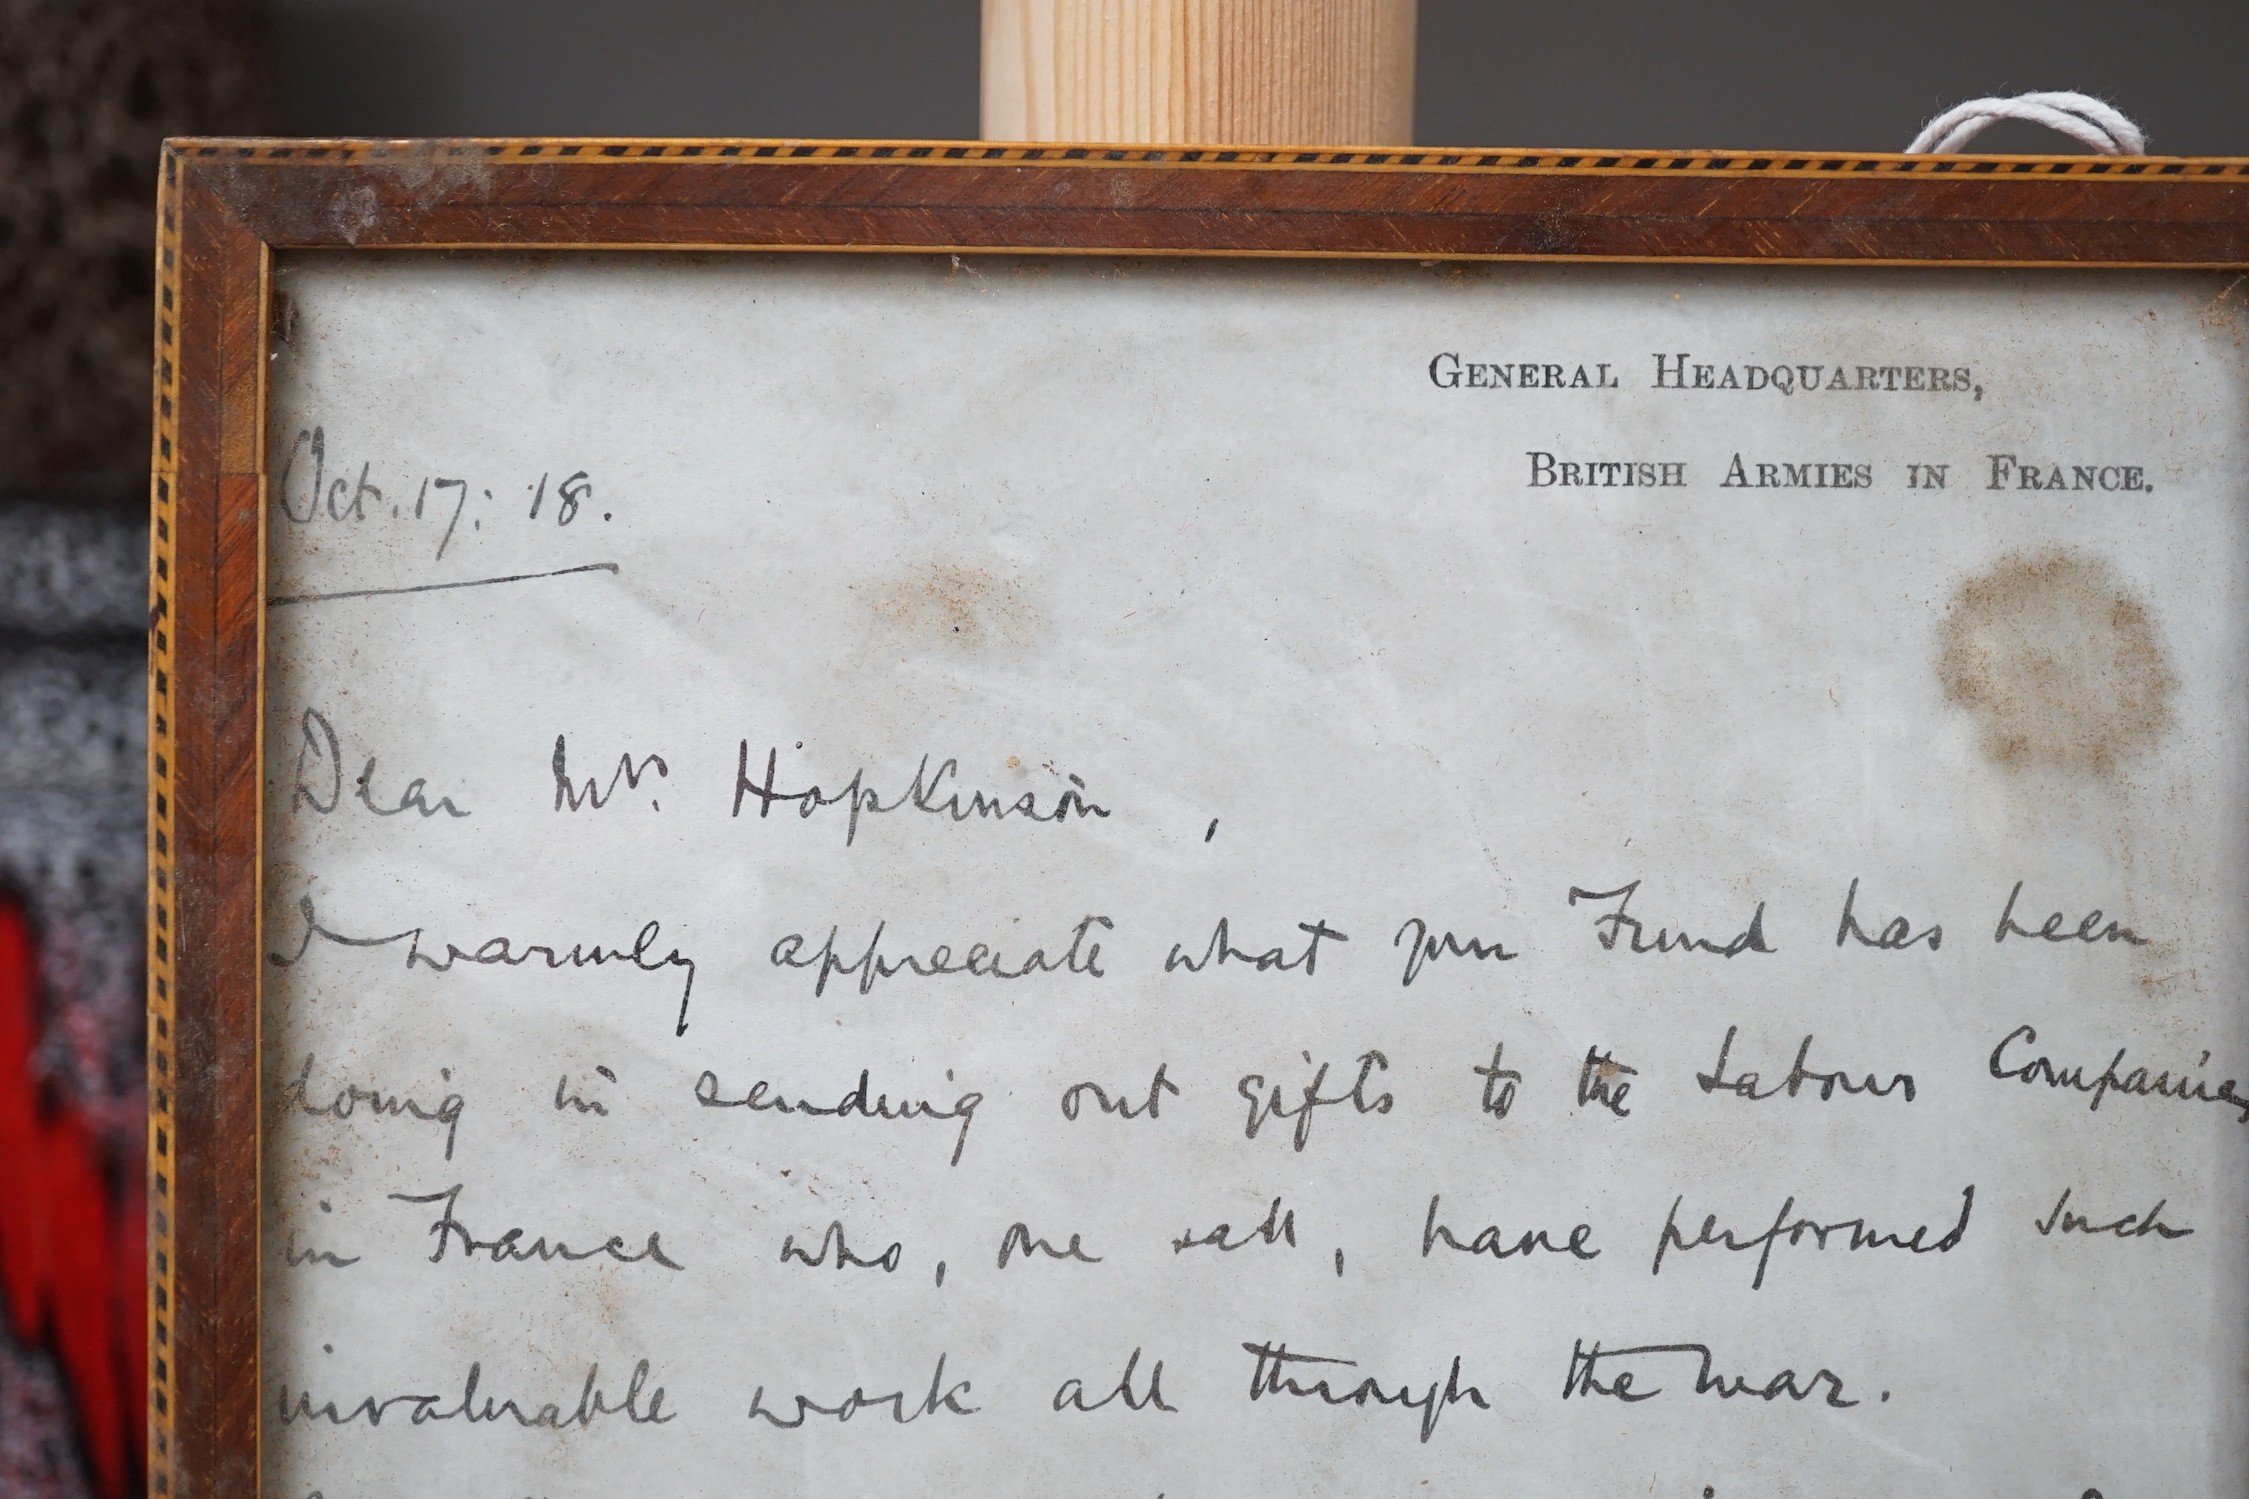 GENERAL HEADQUARTERS,
BRITISH ARMIES IN FRANCE.
Oct. 17: '18.
Dear Mrs. Hopkinson,
I warmly appreciate what your Fund has been
doing in sending out gifts to the Labour Companies
in France who, one & all, have performed such
invaluable work all through the war.